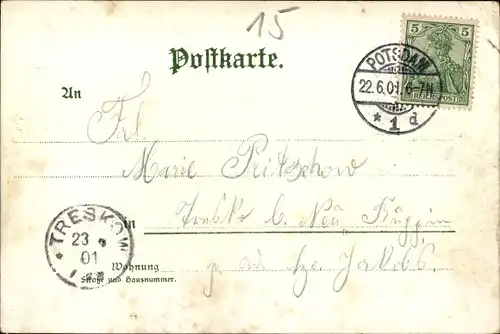 15
Postkarte.
5
REICHSPOST
POTSDAM
22.6.01. 6-7N
* 1 d
An
Frl.
Marie Pritzkow
in Treskow b. Neu Ruppin
Wohnung
Straße und Hausnummer.
Jakobs.
* TRESKOW
23 6
01